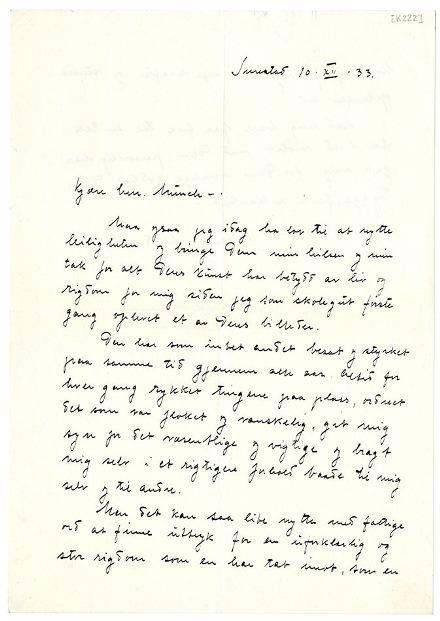 [K222]
10. XII. 33.
Kjære herr. Munch –
Maa ogsaa jeg idag ha lov til at nytte
leiligheten og bringe Dem min hilsen og min
tak for alt Deres kunst har betydd av liv og
rigdom for mig siden jeg som skolegut første
gang oplevet et av Deres billeder.
Den har som intet andet besat og styrket
paa samme tid gjennem alle aar. Altid har
hver gang rykket tingene paa plass, ordnet
det som var floket og vanskelig, git mig
syn for det væsentlige og vigtige og bragt
mig selv i et rigtigere forhold baade til mig
selv og til andre.
Men det kan saa lite nytte med fattige
ord at finne uttryk for en uforklarlig og
stor rigdom som en har tat imot, som en